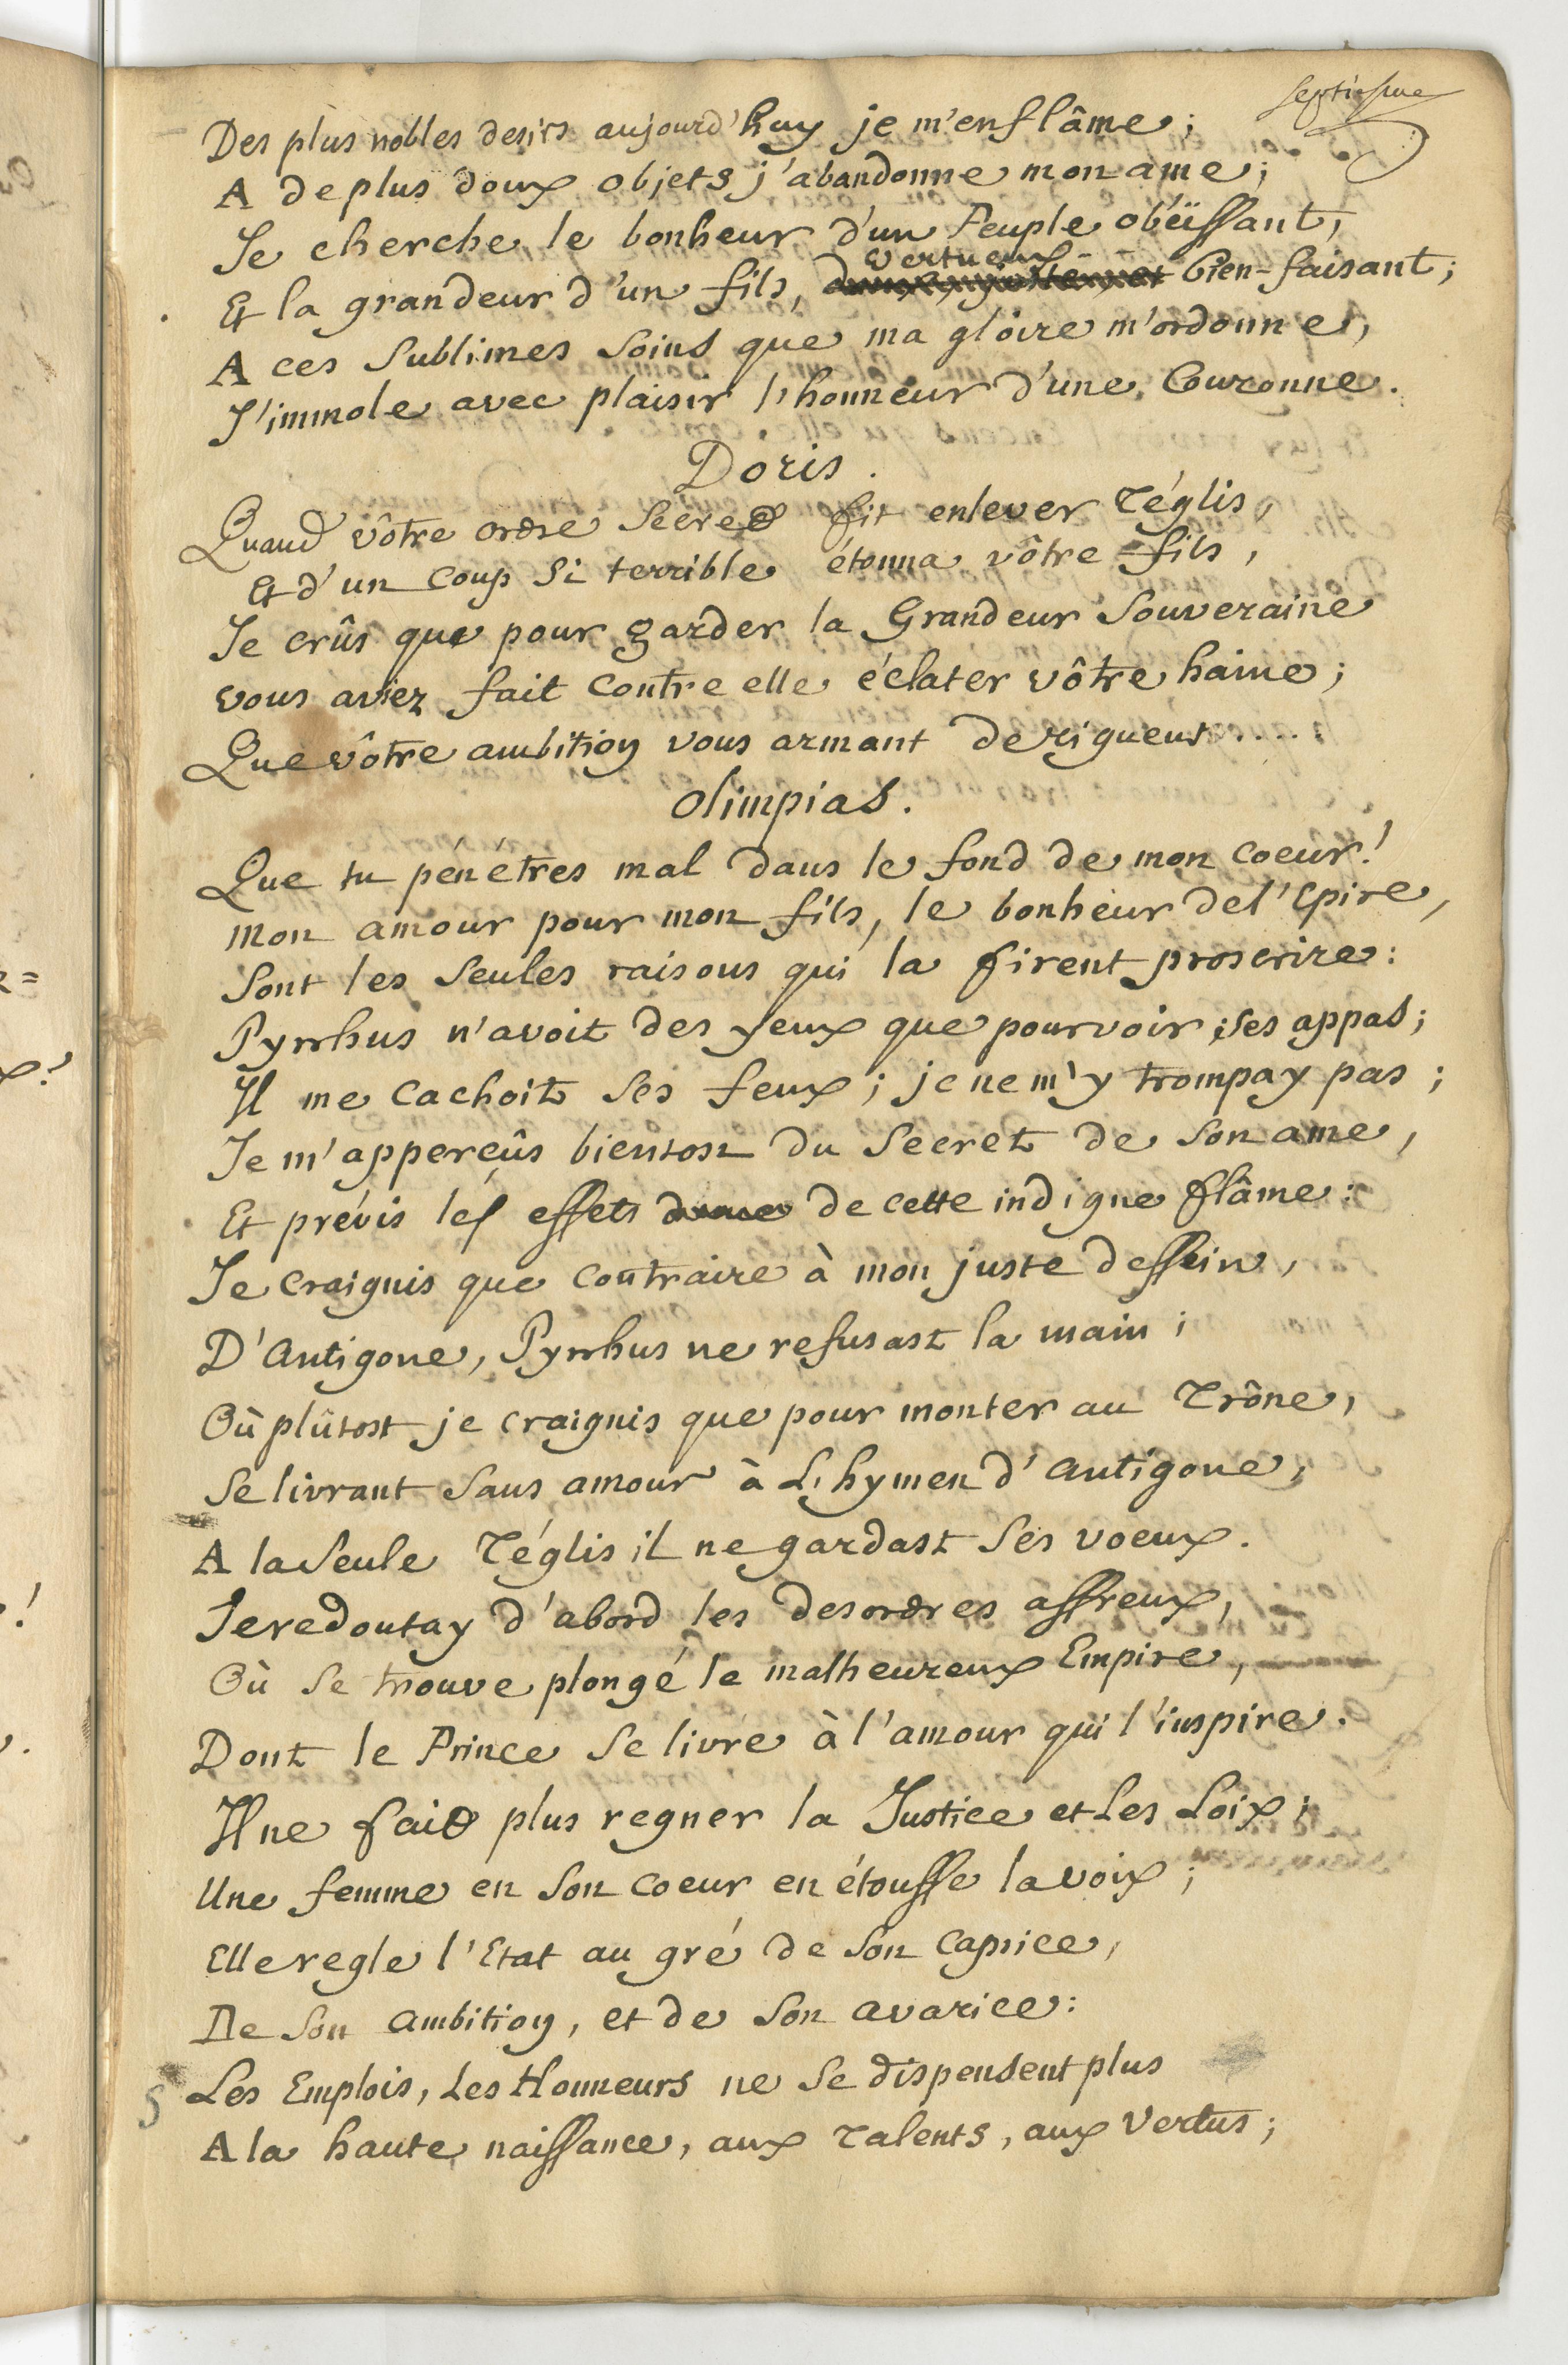 septiesme
Des plus nobles desirs aujourd'huy je m'enflâme;
A de plus doux objets j'abandonne mon ame;
Je cherche le bonheur d'un Peuple obéïssant,
vertueux
Et la grandeur d'un fils, bien-faisant;
A ces sublimes soins que ma gloire m'ordonne,
J'immole avec plaisir l'honneur d'une Couronne.
Doris.
Quand vôtre ordre secred fit enlever Téglis,
Et d'un coup si terrible étonna vôtre fils,
Je crûs que pour garder la Grandeur Souveraine
vous aviez fait contre elle éclater vôtre haine;
Que vôtre ambition vous armant de rigueur....
Olimpias.
Que tu pénétres mal dans le fond de mon coeur!
Mon amour pour mon fils, le bonheur de l'Epire,
Sont les seules raisons qui la firent proscrire:
Pyrrhus n'avoit des yeux que pour voir ses appas;
Il me cachoit ses feux; je ne m'y trompay pas;
Je m'apperçûs bientost du secret de son ame,
Et prévis les effets de cette indigne flâme:
Je craignis que contraire à mon juste dessein,
D'Antigone, Pyrrhus ne refusast la main;
Où plûtost je craignis que pour monter au Trône,
Se livrant sans amour à L'hymen d'Antigone,
A la seule Téglis il ne gardast ses voeux.
Je redoutay d'abord les desordres affreux,
Où se trouve plongé le malheureux Empire,
Dont le Prince se livre à l'amour qui l'inspire.
Il ne faid plus regner la Justice et Les Loix;
Une femme en son coeur en étouffe la voix;
Elle regle l'Etat au gré de son caprice,
De son ambition, et de son avarice:
Les Emplois, Les Honneurs ne se dispensent plus
A la haute naissance, aux Talents, aux Vertus;